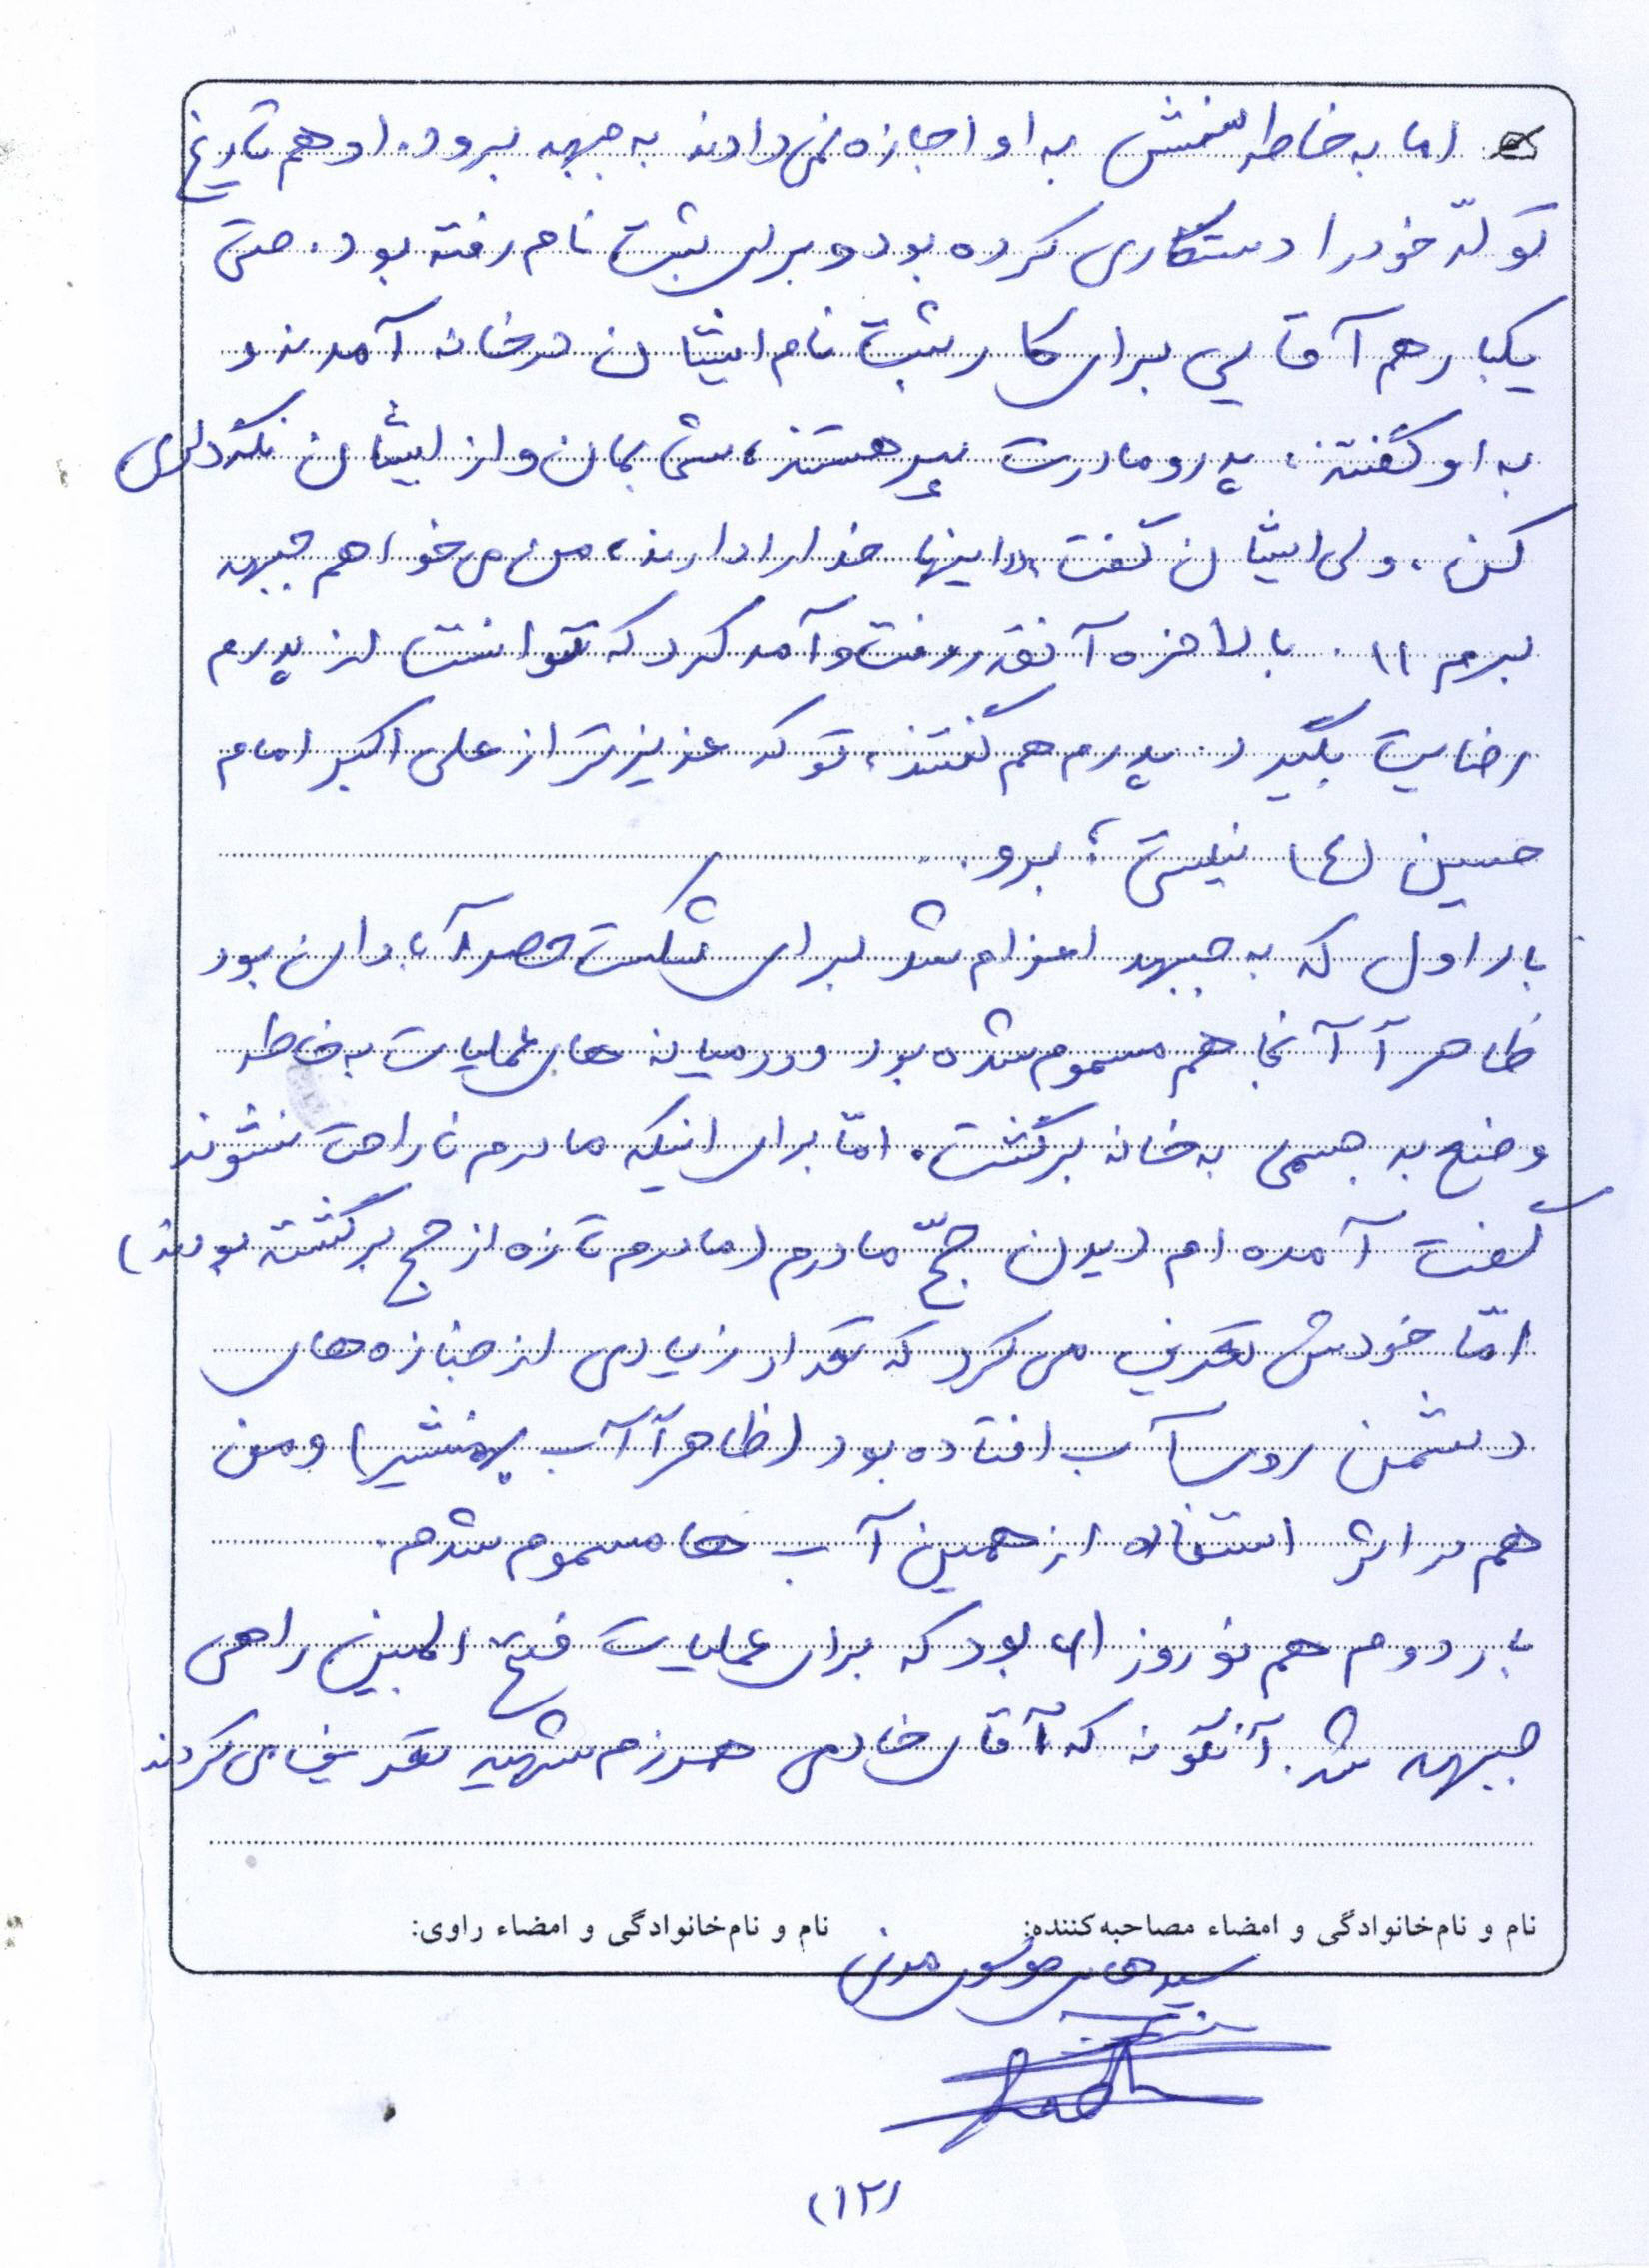 اما به خاطر سنش به او اجازه نمی دادند به جبهه برود. او هم تاریخ
تولّد خود را دستکاری کرده بود و برای ثبت نام رفته بود. حتی
یکبار هم آقایی برای کار ثبت نام ایشان در خانه آمدند و
به او گفتند، پدر و مادرت پیر هستند، شما بمان و از ایشان نگهداری
کن. ولی ایشان گفت «اینها خدا را دارند، من می خواهم جبهه
بروم». بالاخره آنقدر رفت و آمد کرد که توانست از پدرم
رضایت بگیرد. پدرم هم گفتند، تو که عزیزتر از علی اکبر امام
حسین (ع) نیستی؛ برو.
بار اول که به جبهه اعزام شد برای شکست حصر آبادان بود
ظاهراً آنجا هم مسموم شده بود و در میانه های عملیات به خاطر
وضع بد جسمی به خانه برگشت. امّا برای اینکه مادرم ناراحت نشوند
گفت آمده ام دیدن حجّ مادرم (مادرم تازه از حج برگشته بودند)
امّا خودش تعریف می کرد که تعداد زیادی از جنازه های
دشمن روی آب افتاده بود (ظاهراً آب بهمنشیر) و من
هم در اثر استفاده از همین آب ها مسموم شدم.
بار دوم هم نوروز ۶۱ بود که برای عملیات فتح المبین راهی
جبهه شد. آنگونه که آقای خادمی همرزم شهید تعریف می کردند
نام و نام‌خانوادگی و امضاء مصاحبه‌کننده: نام و نام‌خانوادگی و امضاء راوی:
سید هادی موسوی مدنی
(۱۲)